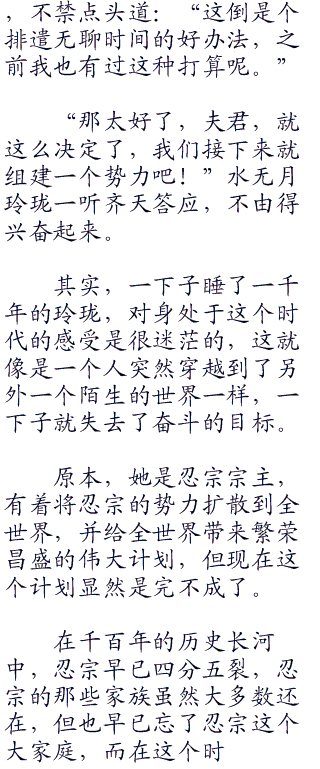 ，不禁点头道：“这倒是个
排遣无聊时间的好办法，之
前我也有过这种打算呢。”
“那太好了，夫君，就
这么决定了，我们接下来就
组建一个势力吧！”水无月
玲珑一听齐天答应，不由得
兴奋起来。
其实，一下子睡了一千
年的玲珑，对身处于这个时
代的感受是很迷茫的，这就
像是一个人突然穿越到了另
外一个陌生的世界一样，一
下子就失去了奋斗的目标。
原本，她是忍宗宗主，
有着将忍宗的势力扩散到全
世界，并给全世界带来繁荣
昌盛的伟大计划，但现在这
个计划显然是完不成了。
在千百年的历史长河
中，忍宗早已四分五裂，忍
宗的那些家族虽然大多数还
在，但也早已忘了忍宗这个
大家庭，而在这个时